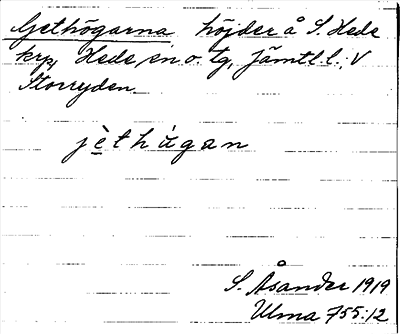 Gethögarna höjder å S. Hede
krp, Hede, sn o. tg, Jämtl.l., V
Storryden.
jèthùgan
S. Åsander 1919
Ulma 755:12